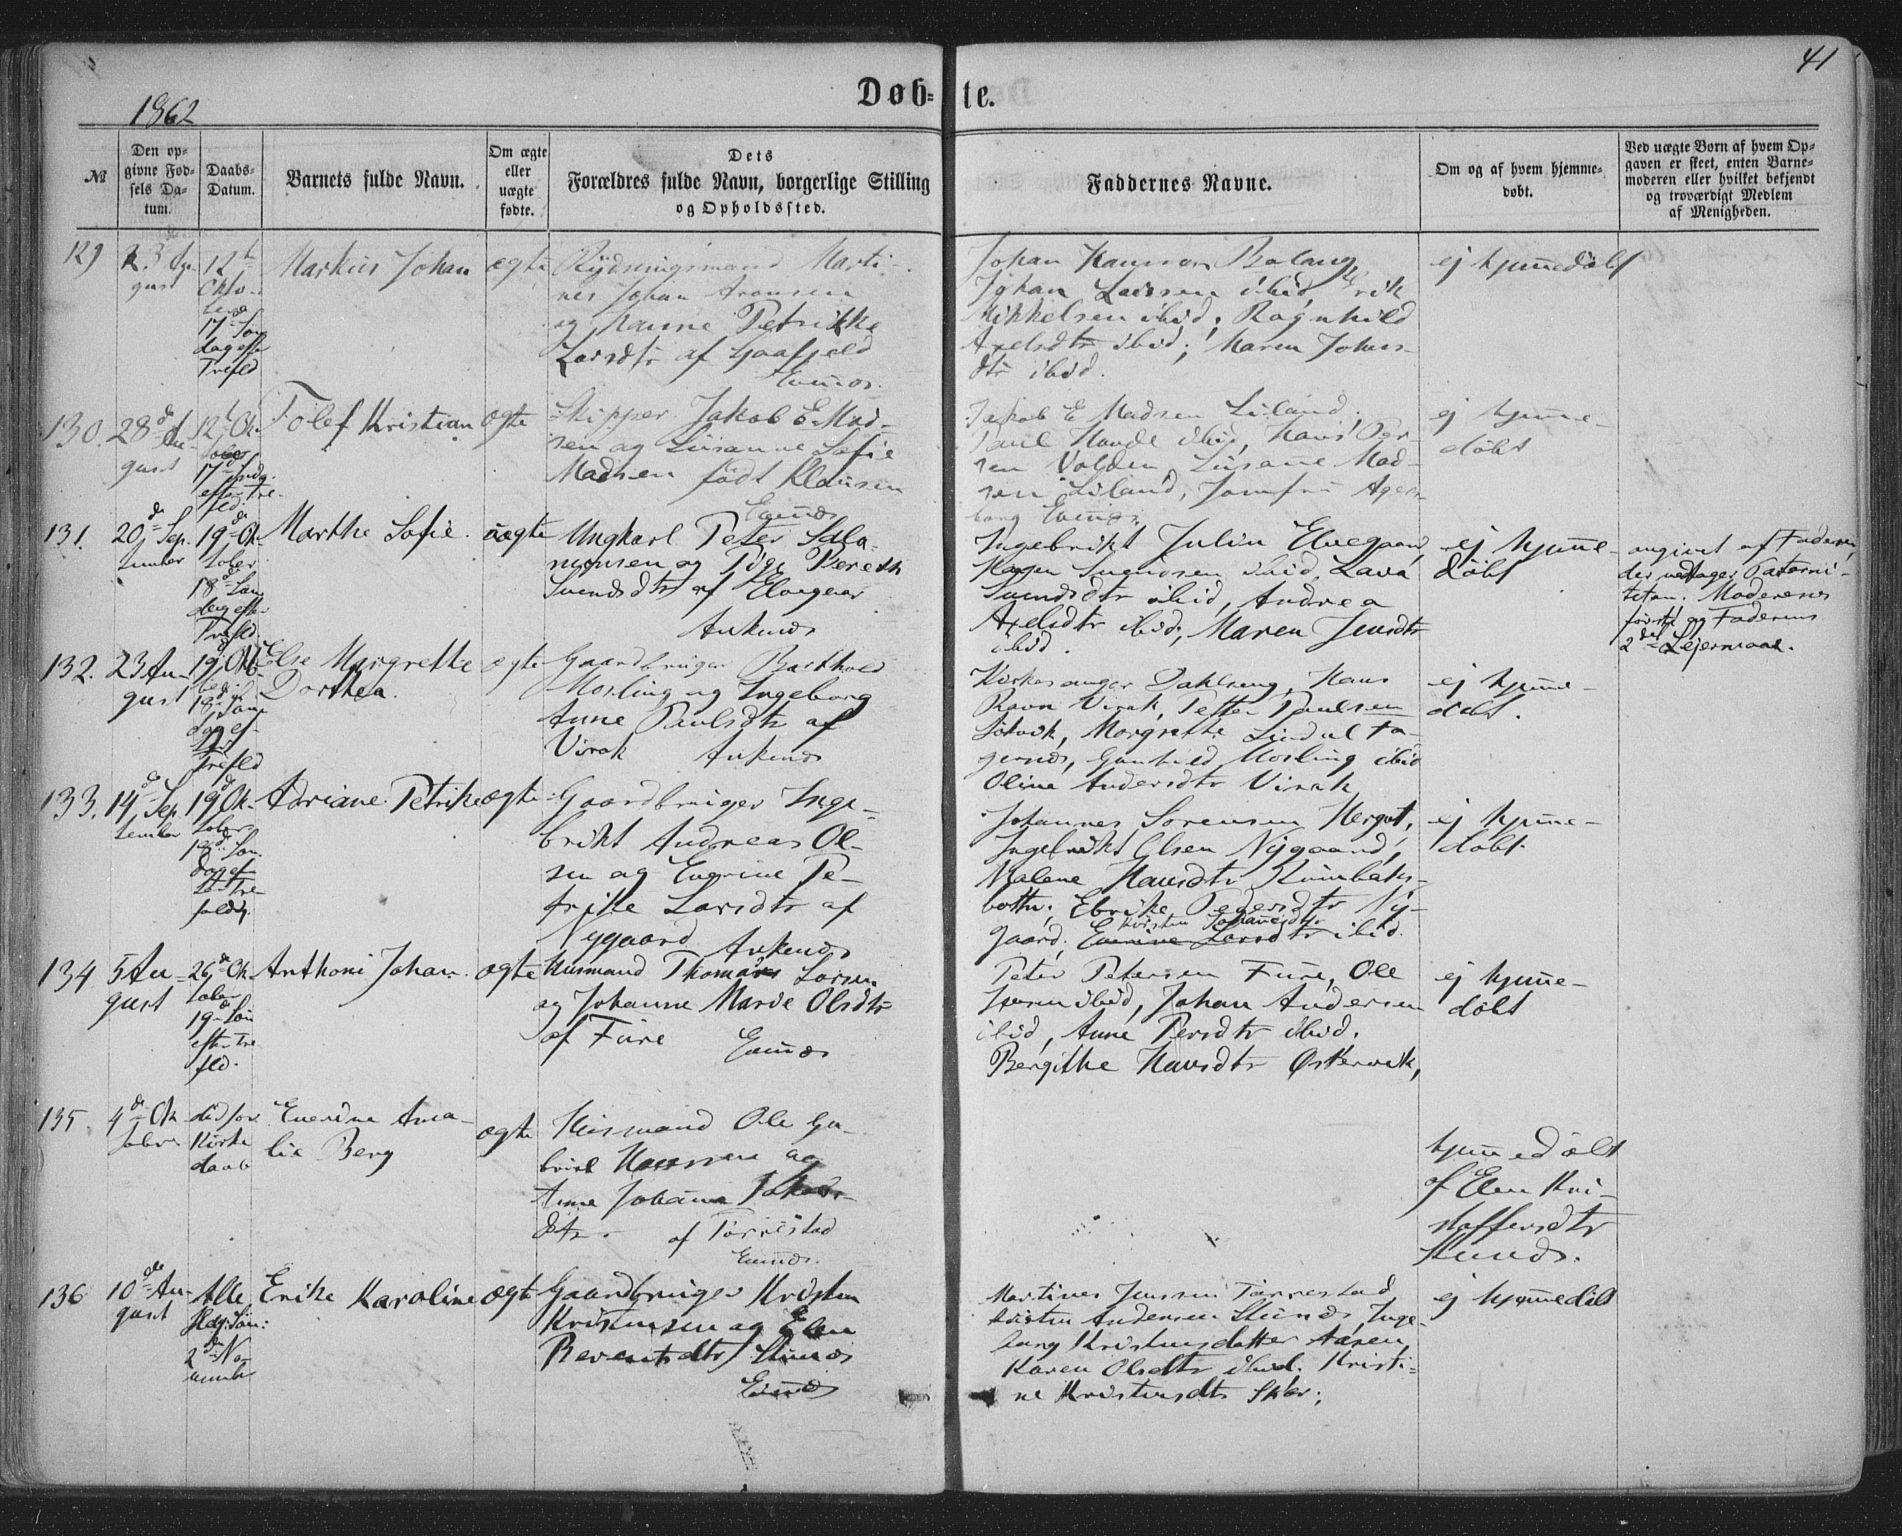 41
1862
Døb-te.
№
Den op-
givne Fød-
sels Da-
tum.
Daabs-
Datum.
Barnets fulde Navn.
Om ægte
eller
uægte
fødte.
Dets
Forældres fulde Navn, borgerlige Stilling
og Opholdssted.
Faddernes Navne.
Om og af hvem hjemme-
døbt.
Ved uægte Børn af hvem Op-
gaven er skeet, enten Barne-
moderen eller hvilket bekjendt
og troværdigt Medlem
af Menigheden.
129
gust
12te
Okto-
17de Søn
dag efter
Trefld
Markus Johan
ægte
Rydningsmand Marti-
nes Johan Aronsen
og Hanne Petrikke
Larsdtr af Gaafjeld
Evenæs.
Johan Hansen Balang,
Johan Larssen ibid, Erik
Mikkelsen ibid; Ragnhild
Axelsdtr ibid; Maren Johns-
dtr ibid.
ej hjemedøbt
130.
28de Au-
gust
12te Ok-
tober
17de Søndg.
efter Tre-
fld
Tolef Kristian
ægte
Skipper Jakob E. Mad-
sen og Susanne Sofie
Madsen født Klausen
Evenæs
Jakob E Madsen Liland.
Paul Hande ibid, Hans Per-
sen Volden, Susane Mad-
sen Liland, Jomfru
Evenæs
ej hjeme-
døbt
131.
20de Sep-
tember
19de Ok-
tober
18de Søn
dag efter
Trefld.
Marthe Sofie.
uægte
Ungkarl Peter Salo-
monsen og Pige Bereth
Svendsdtr af Elvegaar
Ankenæs
Ingebrikt Julin Elvegaard,
Svendsen ibid, Lava
Svendsdtr ibid, Andrea
Axelsdtr ibid; Maren Jensdtr
ibid.
ej hjeme-
døbt
angivet af Faderen,
der vedtager Paterni-
teten. Moderenes
første og Faderens
2det Lejermaal.
132.
23 Au-
gust
19de Okto-
ber
18de Søn-
dag ef-
ter
Trefld
Else Margrethe
Dorthea.
ægte
Gaardbruger Barthold
Mosling og Ingeborg
Anne Paulsdtr af
Virak Ankenæs
Kirkesanger Dahlseng, Hans
Ravn Virak, Petter Paulsen
Margrethe Lindal Fa-
gernæs, Gunhild Mosling ibid
Oline Andersdtr Virak
ej hjeme-
døbt.
133.
14de Sep-
tember
19de Ok-
tober
18de Søn-
dag ef-
ter Tre
foldg.
Adriane Petrike
ægte
Gaardbruger Inge-
brikt Andreas Ol-
sen og Everine Pe-
trike Larsdtr af
Nygaard Ankenæs
Johannes Sørensen Hergot,
Ingebrikt Olsen Nygaard,
Malene Hansdtr Kvinbaks-
bottn; Ebrike Pedersdtr Ny-
Kirsten Johannesdtr
gaard. Everine Larsdtr ibid.
ej hjeme-
døbt.
134
5 Au-
gust
26de Ok-
tober
19de Søn
efter Tre
fld.
Anthoni Johan
ægte
Husmand Thomas Larsen
og Johanne Marie Olsdtr
af Fure Evenæs
Peter Petersen Fure, Ole
Iversen ibid, Johan Andersen
ibid, Anne Persdtr ibid.
Bergithe Hansdtr Østervik,
ej hjeme-
døbt
135.
4de Ok-
tober
død før
Kirke
daab
Everdine Ama-
lie Berg
ægte
Husmand Ole Ga-
briel Hansen og
Anne Johanna
dtr. af Tørrestad
Evenæs.
hjemedøbt
af Elen Kri-
stoffersdtr
Stunæs.
136
10de Au-
gust
Alle
Helg: Søn:
2de No-
vember
Erike Karoline
ægte
Gaardbruger Kristen
Kristensen og Elen
Berentsdtr Stunæs
Evenæs
Martines Jensen Tørrestad
Kristen Andersen Stunæs, Inge-
borg Kristensdatter Aasen,
Karen Olsdtr ibid. Kristi-
ne Kristensdtr
ej hjemedøbt